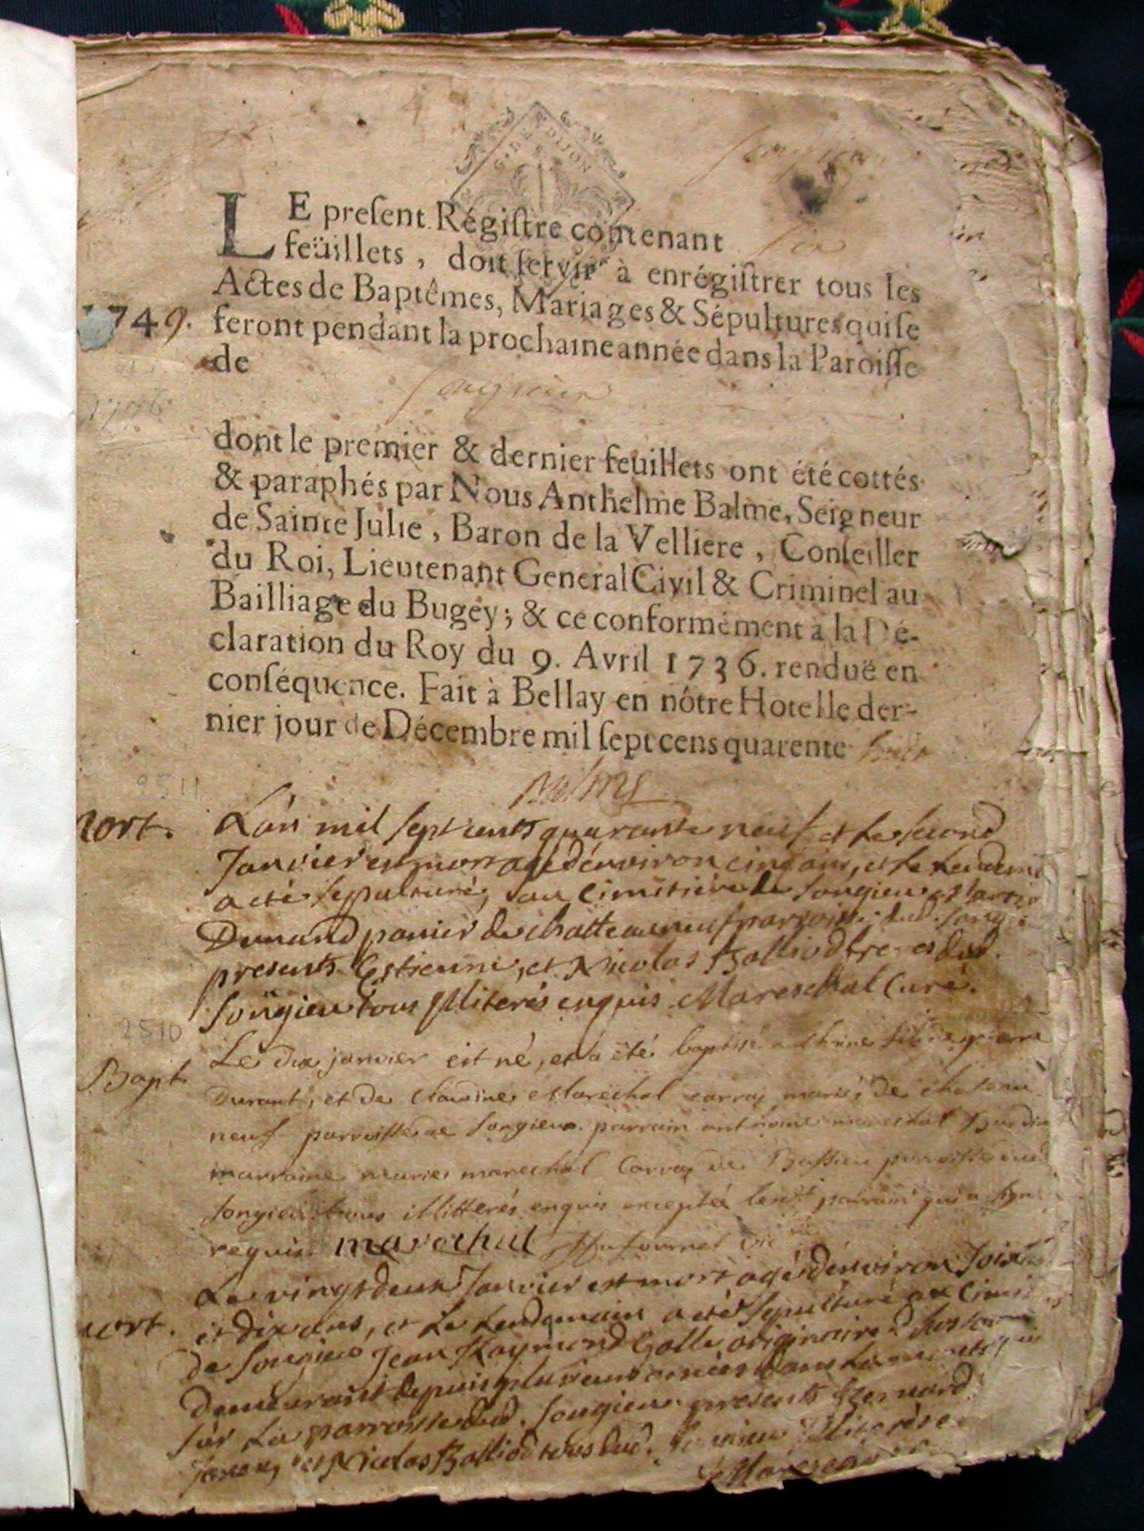 G. DE DIJON
LE preſent Régiſtre contenant
feüillets, doit ſervir à enrégiſtrer tous les
Actes de Baptêmes, Mariages & Sépultures qui ſe
1749.
feront pendant la prochaine année dans la Paroiſſe
de
Songieu
dont le premier & dernier feüillets ont été cottés
& paraphés par Nous Anthelme Balme, Seigneur
de Sainte Julie, Baron de la Velliere, Conſeiller
du Roi, Lieutenant General Civil & Criminel au
Bailliage du Bugey; & ce conformément à la Dé-
claration du Roy du 9. Avril 1736. renduë en
conſéquence. Fait à Bellay en nôtre Hotel le der-
nier jour de Décembre mil ſept cens quarente huit
Balme
2511
mort.
L'an mil sept cents quarante neuf et le second
Janvier est mort agé d'environ cinq ans, et le lendemain
a été sepulturé, au Cimitiére de Songieu
Durand panier de chatteauneuf parroisse dud. Songieu
presents Estienne, et Nicolas Balliod freres dud.
Songieu tous illiterés enquis. Mareschal Curé.
2510
Bapt
Le dix janvier est né, et a été baptisé anthime fils de pierre
Durant, et de Claudine Marechal carraz mariés de chateau
neuf parroisse de Songieu. parrain anthoine marechal
marraine marie marechal Carraz de Bassieu parroisse dud
Songieu tous illitterés enquis excepté led. parrain qui a signé
requis marechal
mort.
Le vingt deux Janvier est mort agé d'environ soixante
et dix ans, et le Lendemain a été sepulturé au Cimitiere
de Songieu Jean Raymond Galle originaire
demeurant depuis plusieurs années dans
sur La parroisse dud. Songieu. presents Bernard
et Nicolas Balliod tous dud. Songieu illiterés
Mareschal